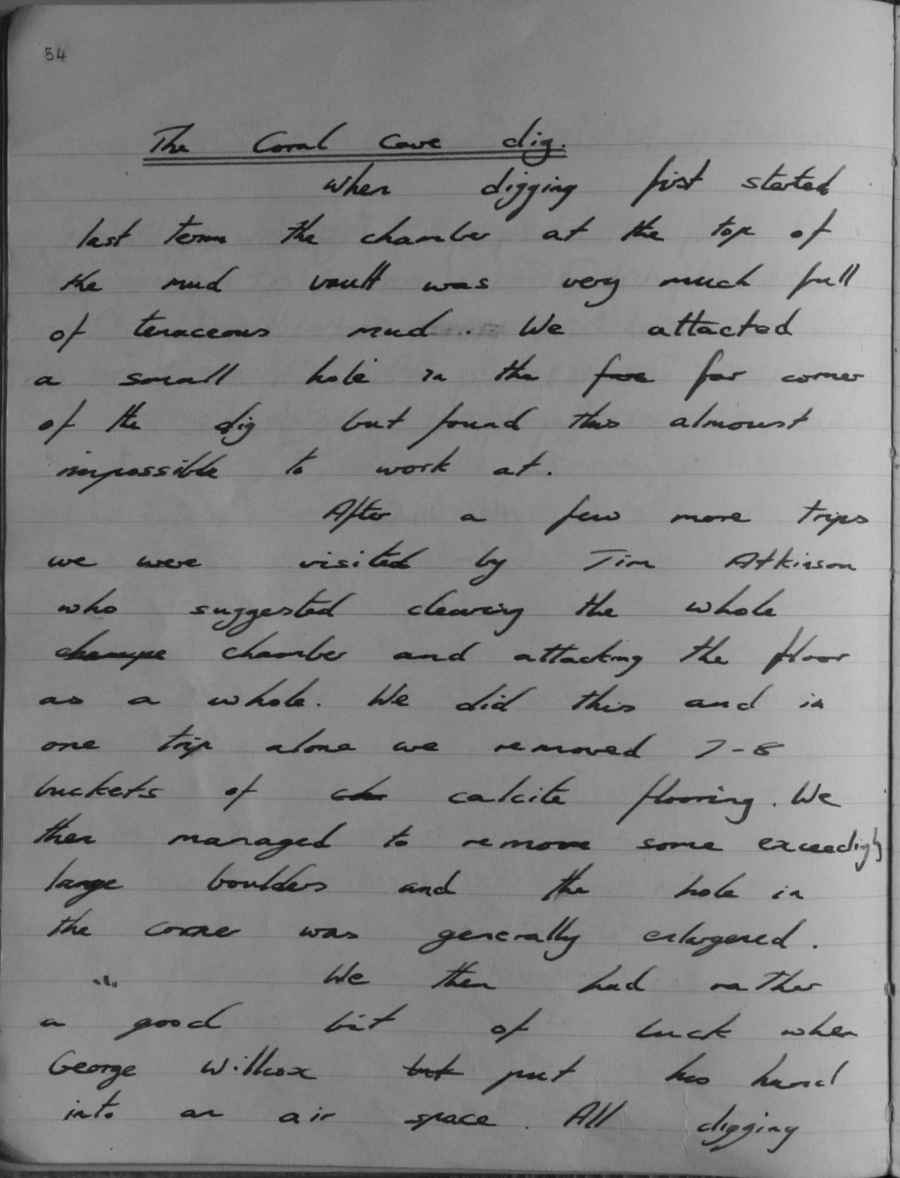 54
The Coral Cave dig.
When digging first started
last term the chamber at the top of
the mud vault was very much full
of tenaceous mud. We attacted
a small hole in the fare far corner
of the dig but found this almoust
impossible to work at.
After a few more trips
we were visited by Tim Atkinson
who suggested clearing the whole
chamber and attacking the floor
as a whole. We did this and in
one trip alone we removed 7-8
buckets of calcite flooring. We
then managed to remove some exceedigly
large boulders and the hole in
the corner was generally enlargened.
We then had rather
a good bit of luck when
George Willcox but put his hand
into an air space. All digging